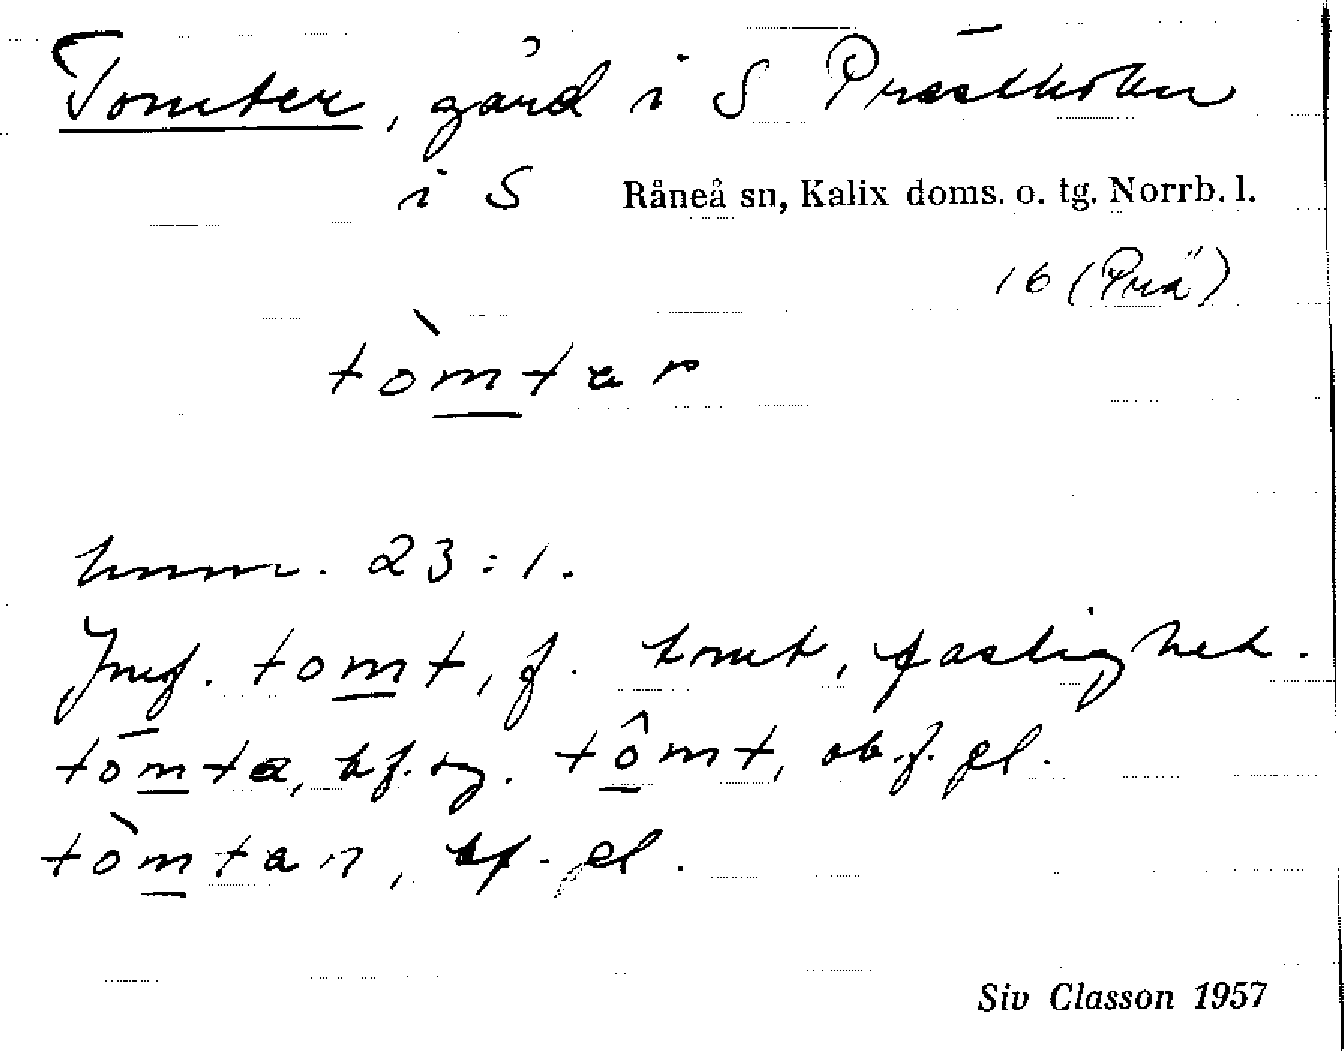 Tomter, gård i S Prästholm
i S Råneå sn, Kalix doms. o. tg. Norrb. l.
16 (Prä)
tòmtar
hmnr. 23:1.
Jmf. tomt, f. tomt, fastighet.
tōmta, bf. sg. tômt, ob. f. pl.
tòmtan, bf. pl.
Siv Classon 1957